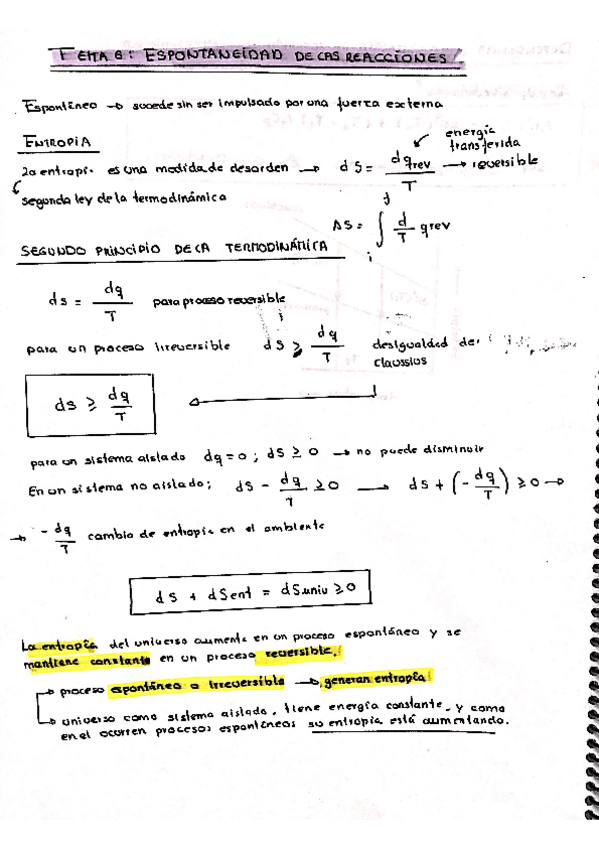 TEMA 6: ESPONTANEIDAD DE LAS REACCIONES
Espontáneo → sucede sin ser impulsado por una fuerza externa
ENTROPIA
energía transferida
la entropi. es una medida de desorden → dS = dqrev / T → reversible
segunda ley de la termodinámica
ΔS = ∫ d/T qrev
SEGUNDO PRINCIPIO DE LA TERMODINÁMICA
ds = dq / T para proceso reversible
para un proceso irreversible dS ≥ dq / T desigualdad de
Claussius
ds ≥ dq / T
para un sistema aislado dq = 0 ; dS ≥ 0 → no puede disminuir
En un sistema no aislado; dS - dq / T ≥ 0 → dS + (- dq / T) ≥ 0 →
→ - dq / T cambia de entropia en el ambiente
dS + dSent = dSuniv ≥ 0
La entropía del universo aumenta en un proceso espontáneo y se
mantiene constante en un proceso reversible.
proceso espontáneo o irreversible → generan entropía
universo como sistema aislado, tiene energía constante, y como
en el ocurren procesos espontáneos su entropía está aumentando.